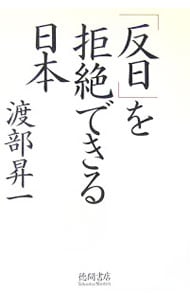 「反日」を
拒絶できる
日本
渡部昇一
徳間書店